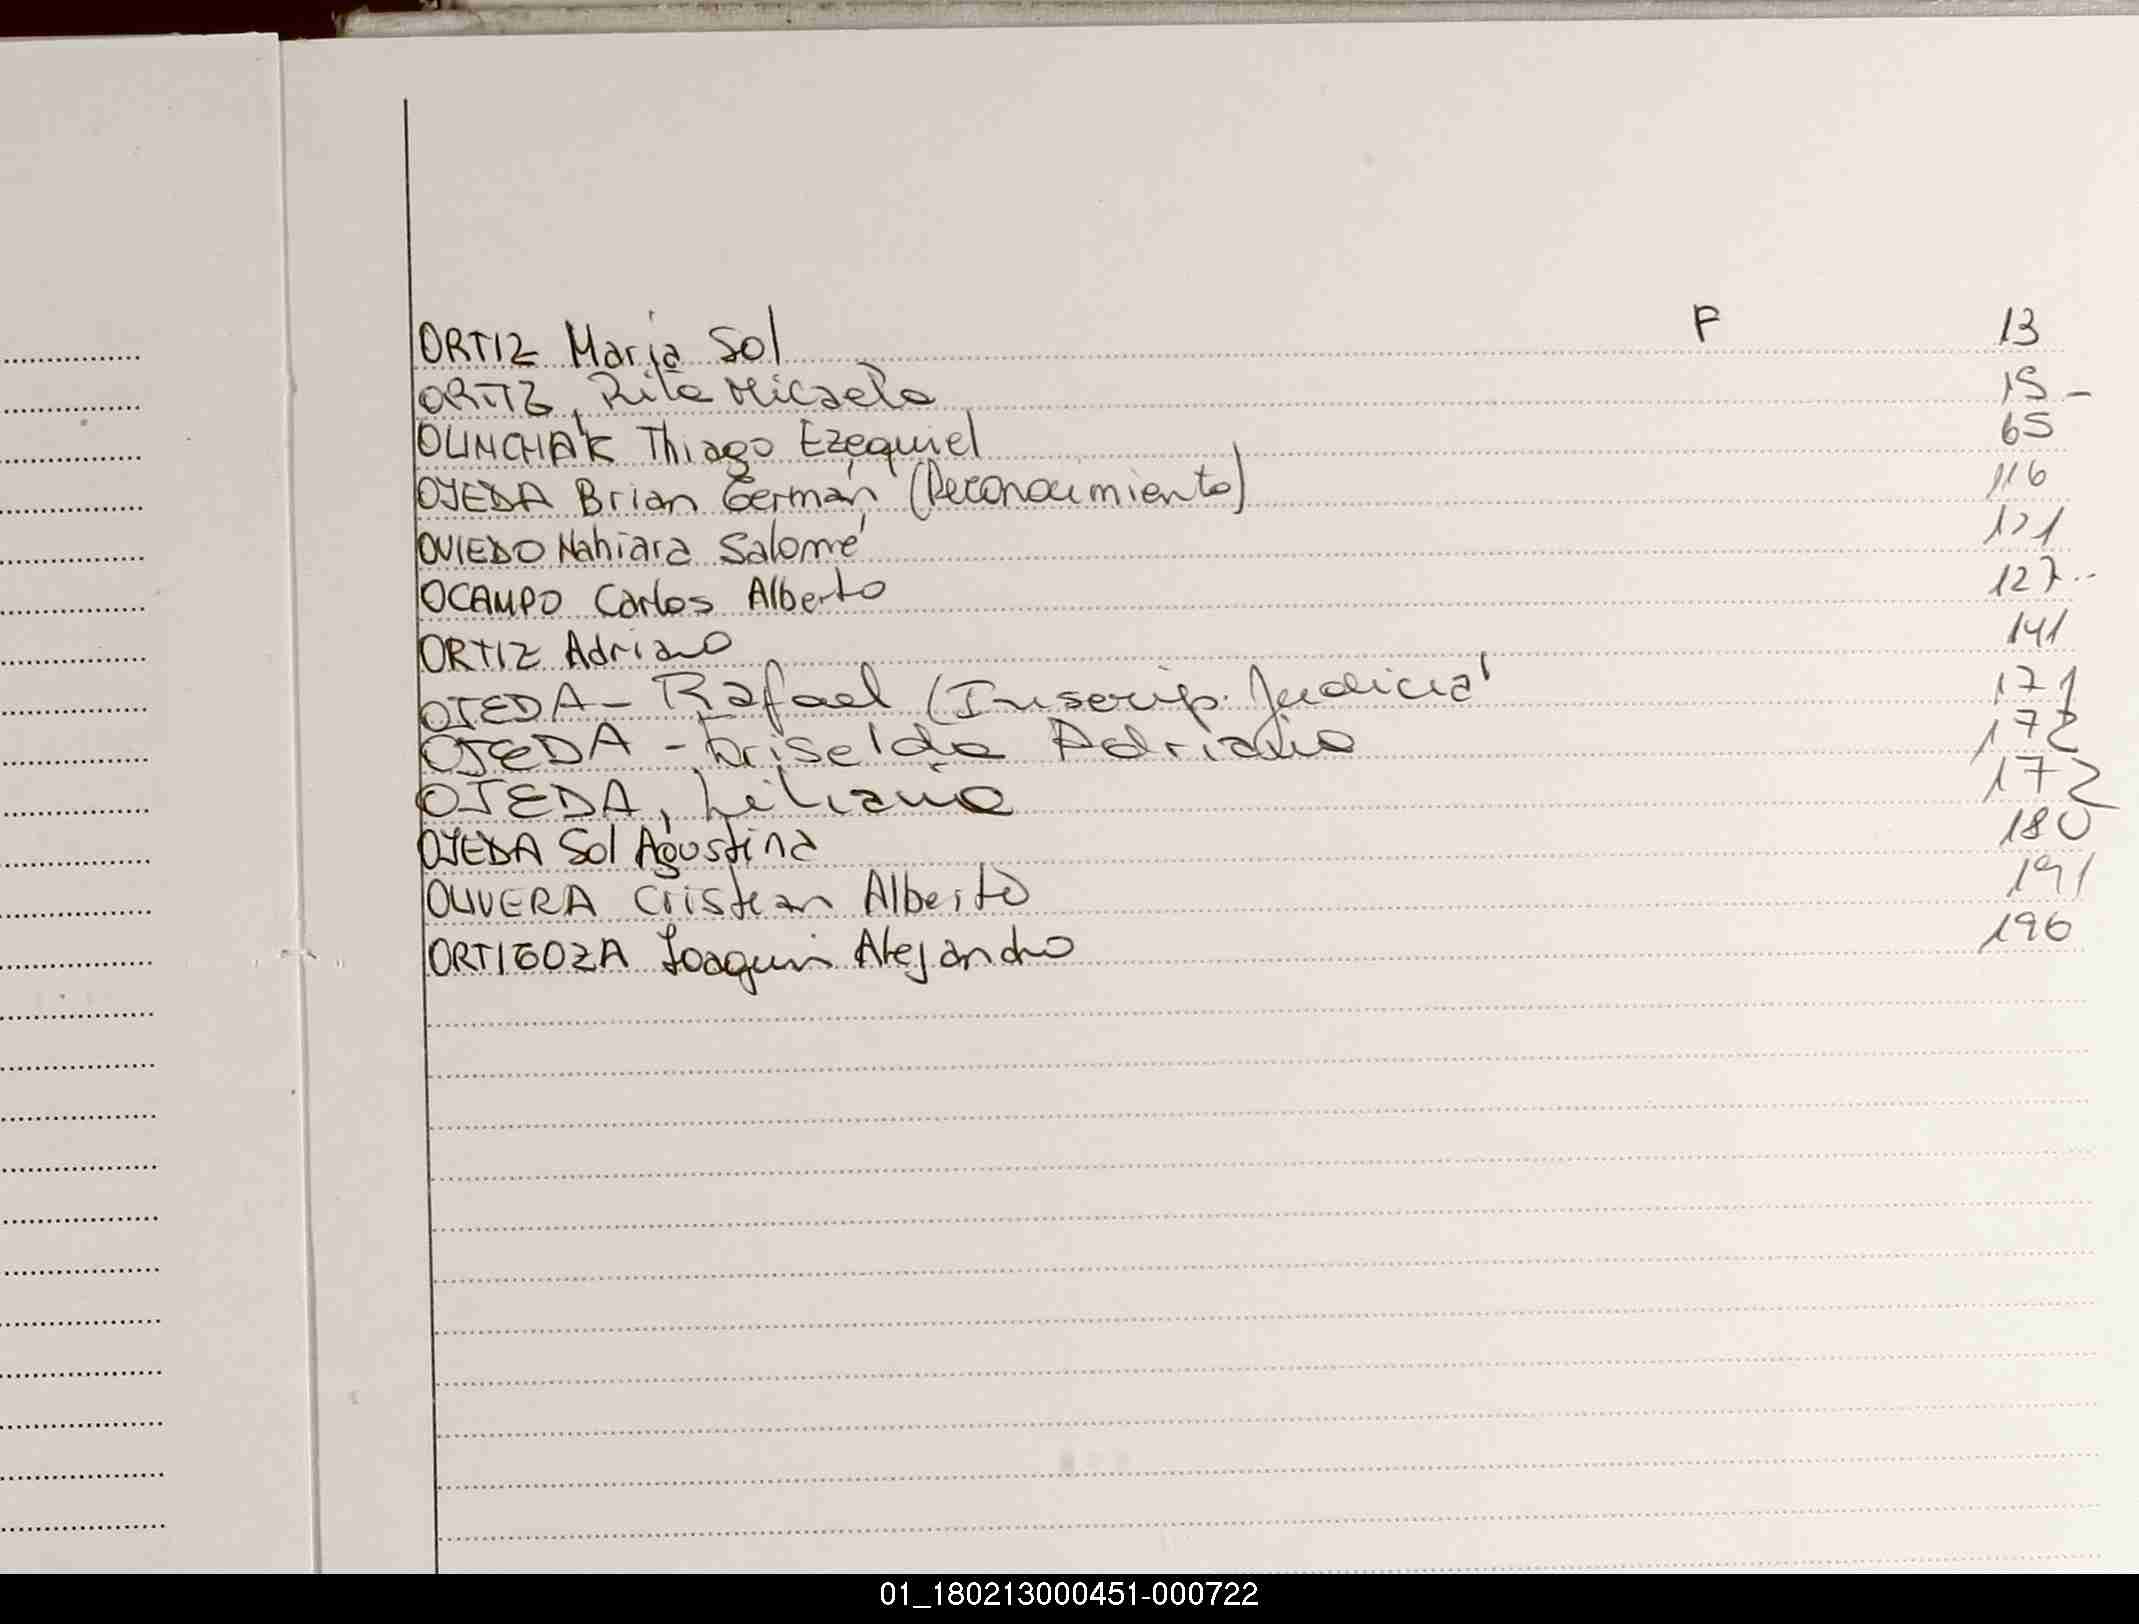 ORTIZ María Sol F 13
ORTIZ, Rita Micaela 15 -
OLINCHAK Thiago Ezequiel 65
OJEDA Brian Germán (Reconocimiento) 116
OVIEDO Nahiara Salomé 121
OCAMPO Carlos Alberto 127..
ORTIZ Adriano 141
OJEDA - Rafael (Inscrip. Judicial 171
OJEDA - Griselda Adriana 172
OJEDA, Liliana 172
OJEDA Sol Agustina 180
OLIVERA Cristian Alberto 191
ORTIGOZA Joaquin Alejandro 196
01_180213000451-000722